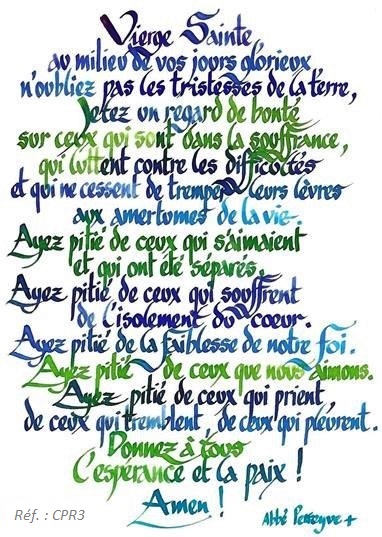 Vierge Sainte
au milieu de vos jours glorieux
n'oubliez pas les tristesses de la terre,
Jetez un regard de bonté
sur ceux qui sont dans la souffrance,
qui luttent contre les difficultés
et qui ne cessent de tremper leurs lèvres
aux amertumes de la vie.
Ayez pitié de ceux qui s'aimaient
et qui ont été séparés.
Ayez pitié de ceux qui souffrent
de l'isolement du coeur.
Ayez pitié de la faiblesse de notre foi.
Ayez pitié de ceux que nous aimons.
Ayez pitié de ceux qui prient,
de ceux qui tremblent, de ceux qui pleurent.
Donnez à tous
l'espérance et la paix !
Amen !
Abbé Perreyve +
Réf. : CPR3